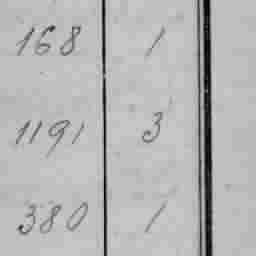 168 1
1191 3
380 1